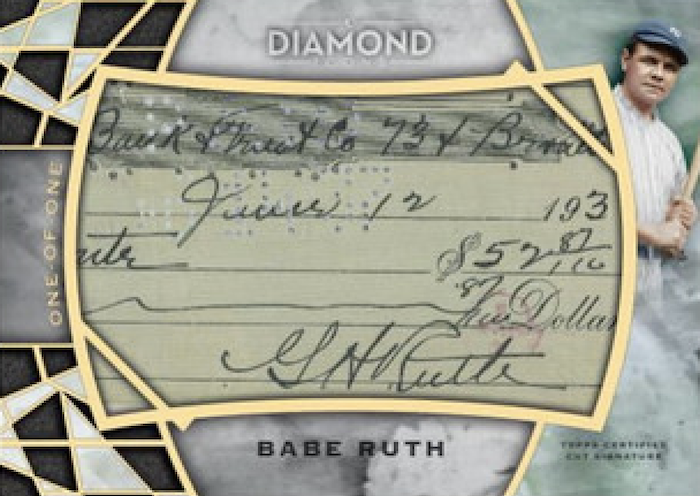 DIAMOND
Bank & Trust Co 73 & Broad
June 12 193
$52 87/100
87
Dollar
GHRuth
ONE OF ONE
BABE RUTH
TOPPS CERTIFIED
CUT SIGNATURE